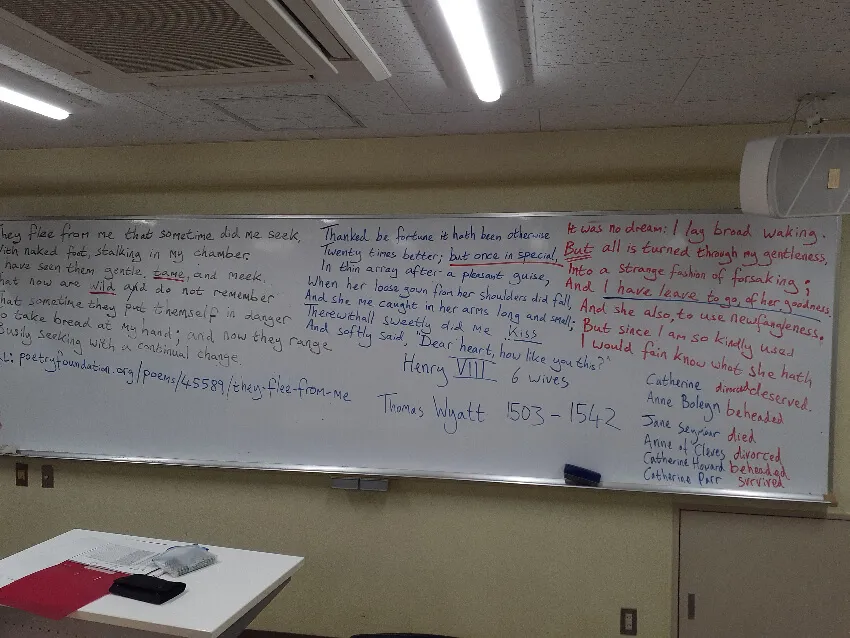 They flee from me that sometime did me seek,
With naked foot, stalking in my chamber.
have seen them gentle, tame, and meek.
hat now are wild and do not remember
hat sometime they put themself in danger
o take bread at my hand; and now they range
Busily seeking with a continual change.
RL: poetryfoundation.org/poems/45589/they-flee-from-me
Thanked be fortune it hath been otherwise
Twenty times better; but once in special,
In thin array after a pleasant guise,
When her loose gown from her shoulders did fall,
And she me caught in her arms long and small;
Therewithall sweetly did me kiss
And softly said, "Dear heart, how like you this?"
Henry VIII 6 wives
Thomas Wyatt 1503 - 1542
It was no dream: I lay broad waking.
But all is turned through my gentleness,
Into a strange fashion of forsaking;
And I have leave to go, of her goodness.
And she also, to use newfangleness.
But since I am so kindly used
I would fain know what she hath
deserved.
Catherine divorced
Anne Boleyn beheaded
Jane Seymour died
Anne of Cleves divorced
Catherine Howard beheaded
Catherine Parr survived